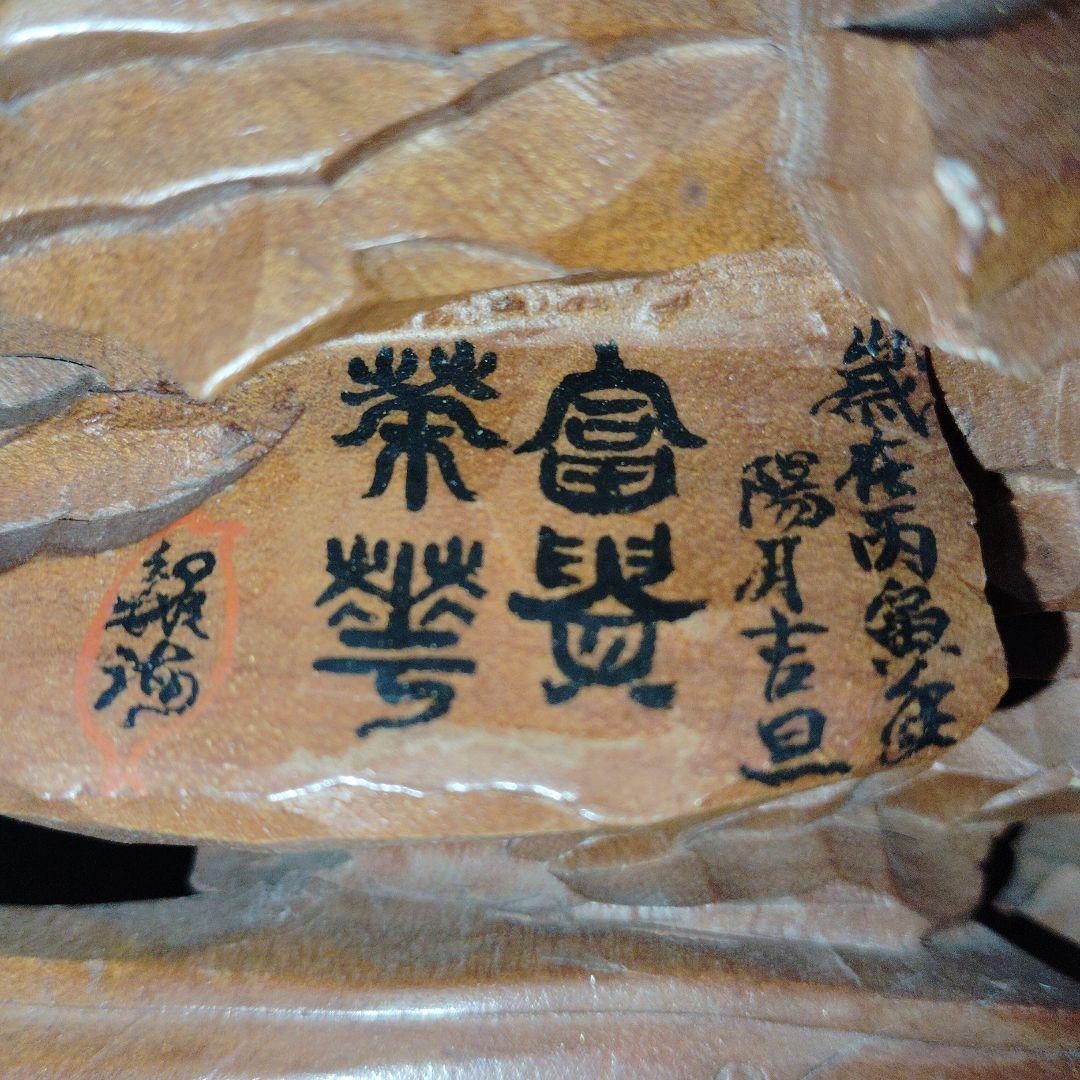 歲在丙寅年
陽月吉旦
富貴
榮華